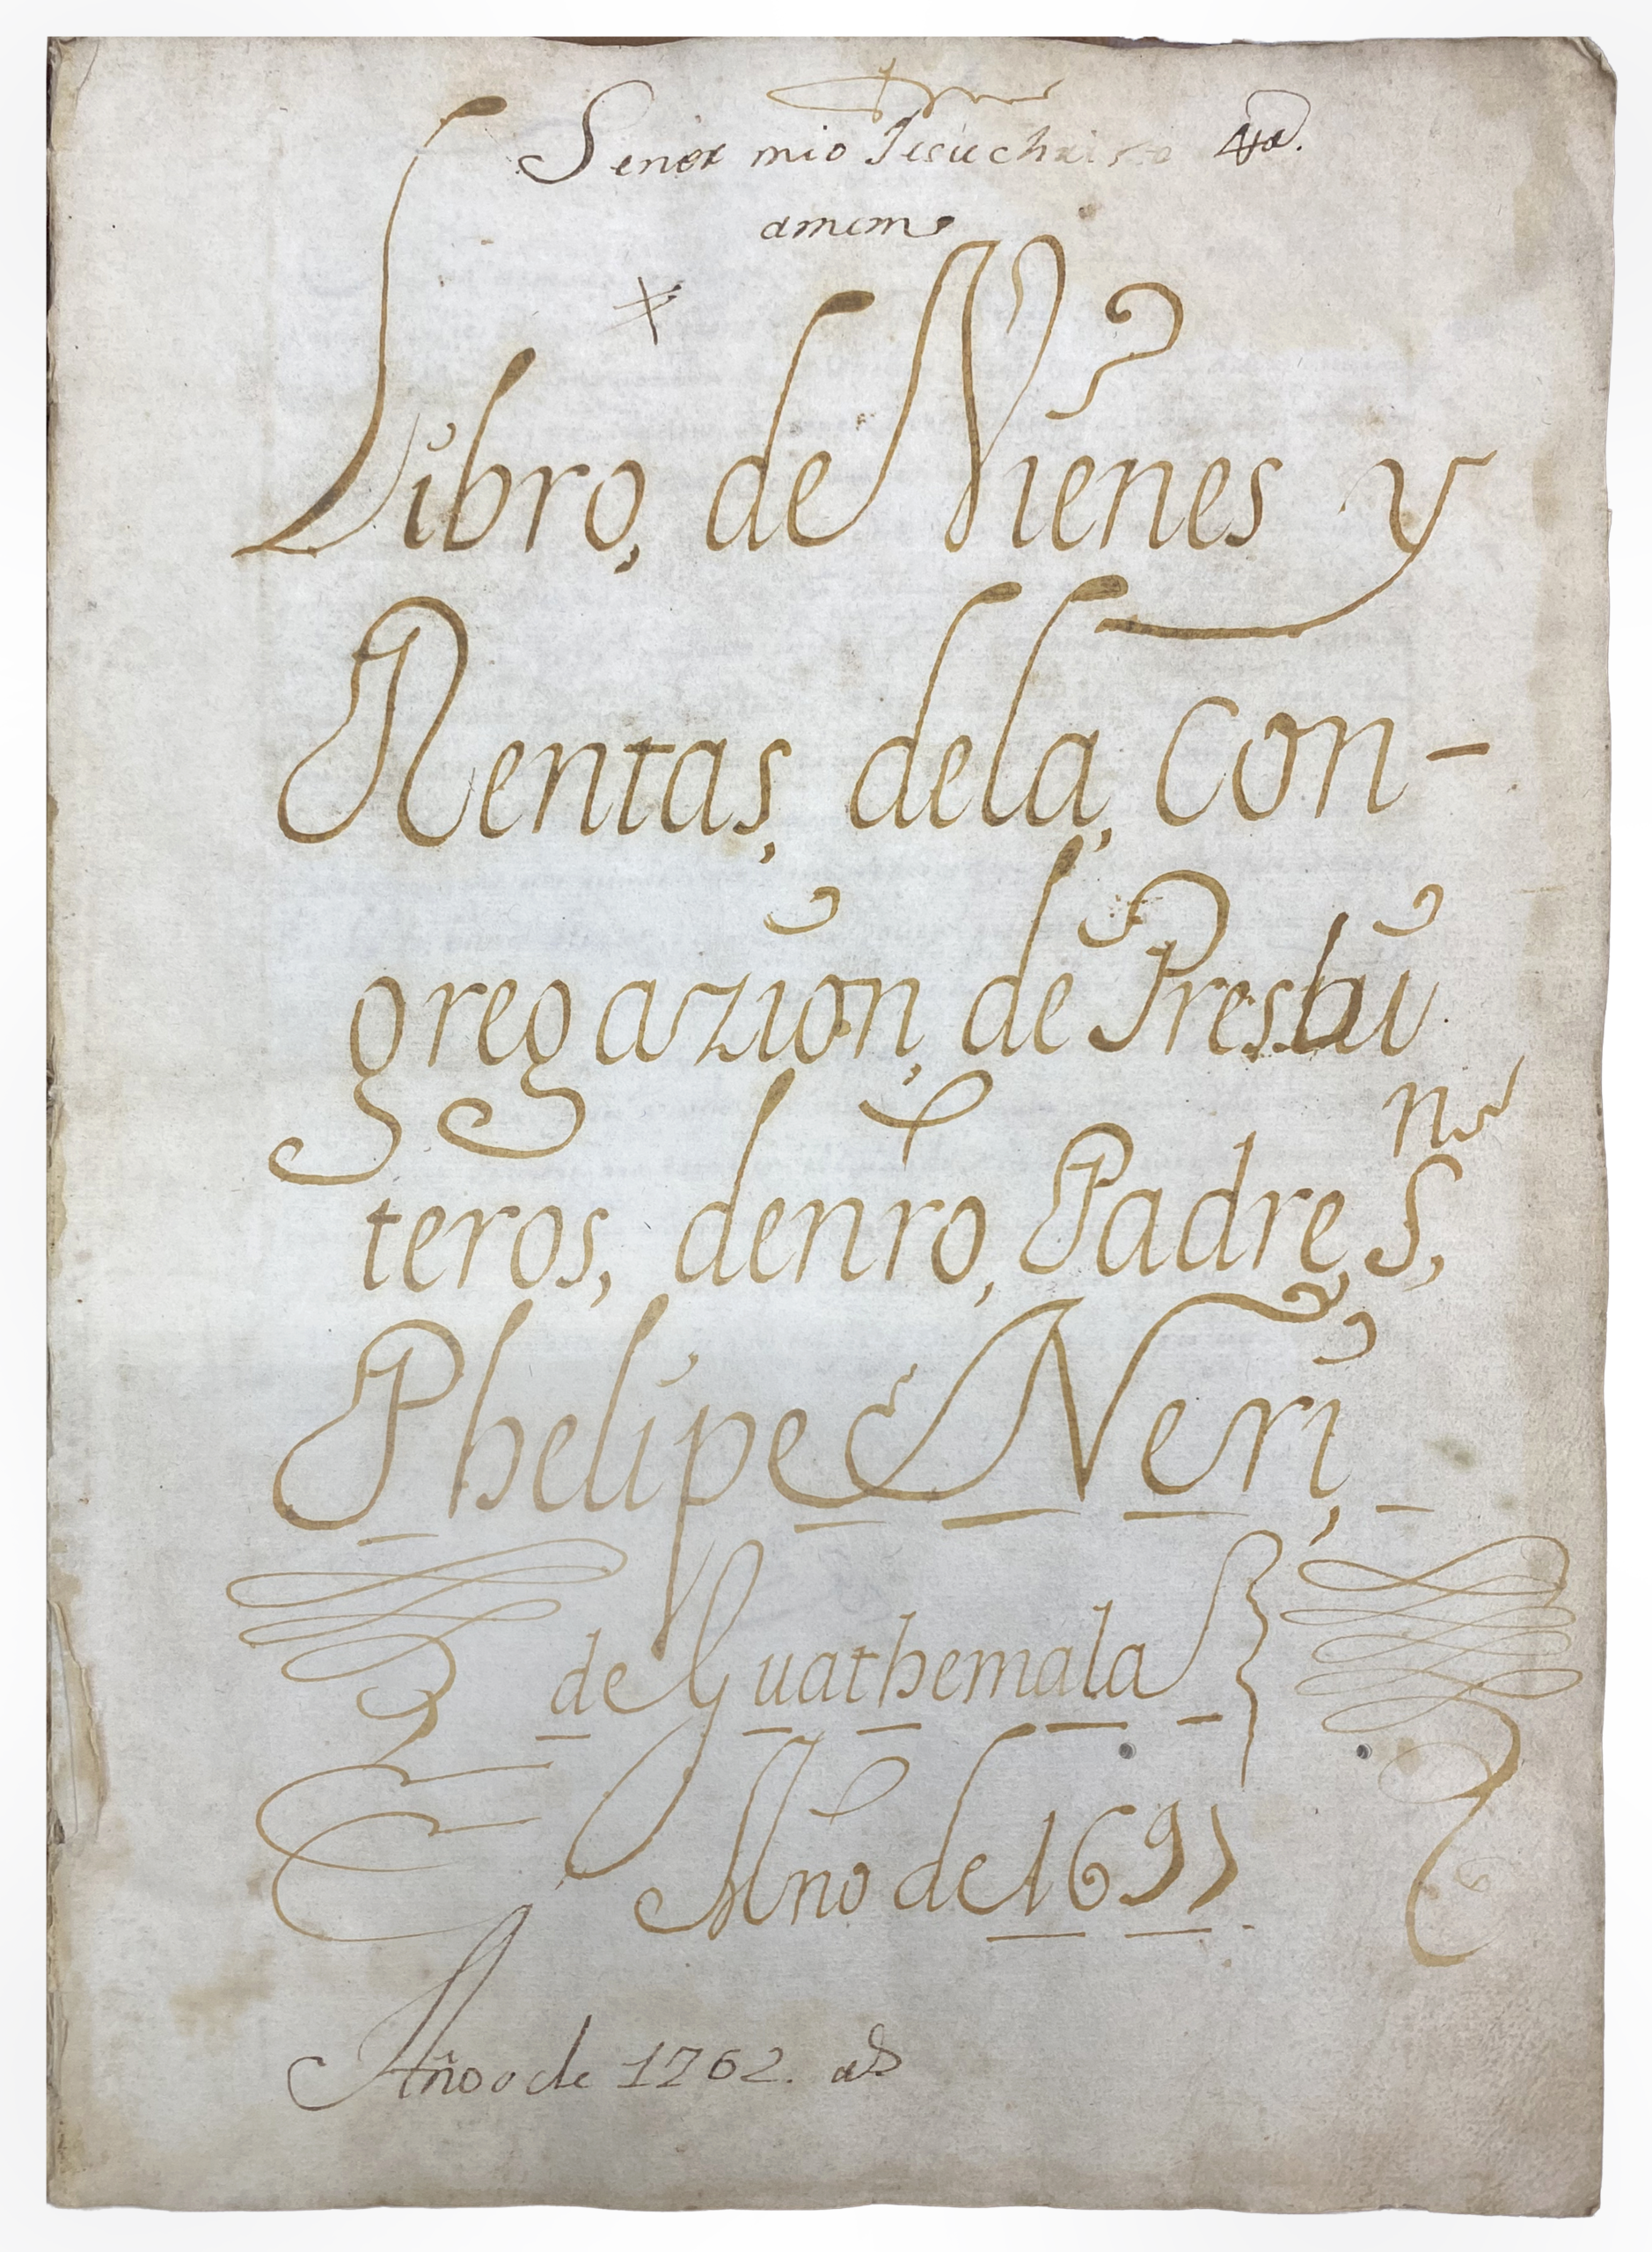 Senor mio Jesuchristo
amem
Libro, de Vienes y
Rentas, dela, Con-
gregazion, de Presbi
teros, denro, Padre, S,
n
Phelipe Neri,
de Guathemala
Año de 1691
Año de 1762.